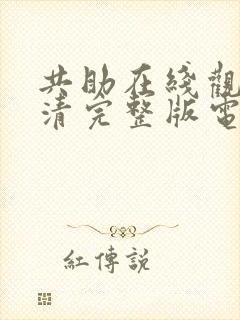 共助在綫觀
清完整版電
紅傳說